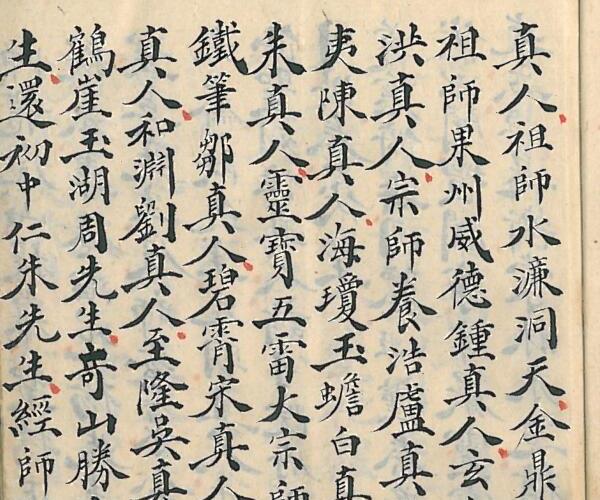 真人祖師水濂洞天金鼎
祖師果州威德鍾真人玄
洪真人宗師養浩盧真
夷陳真人海瓊玉蟾白真
朱真人靈寶五雷大宗師
鐵筆鄒真人碧霄宋真人
真人和淵劉真人至隆吳真
鶴崖玉湖周先生奇山勝
生還初中仁朱先生經師